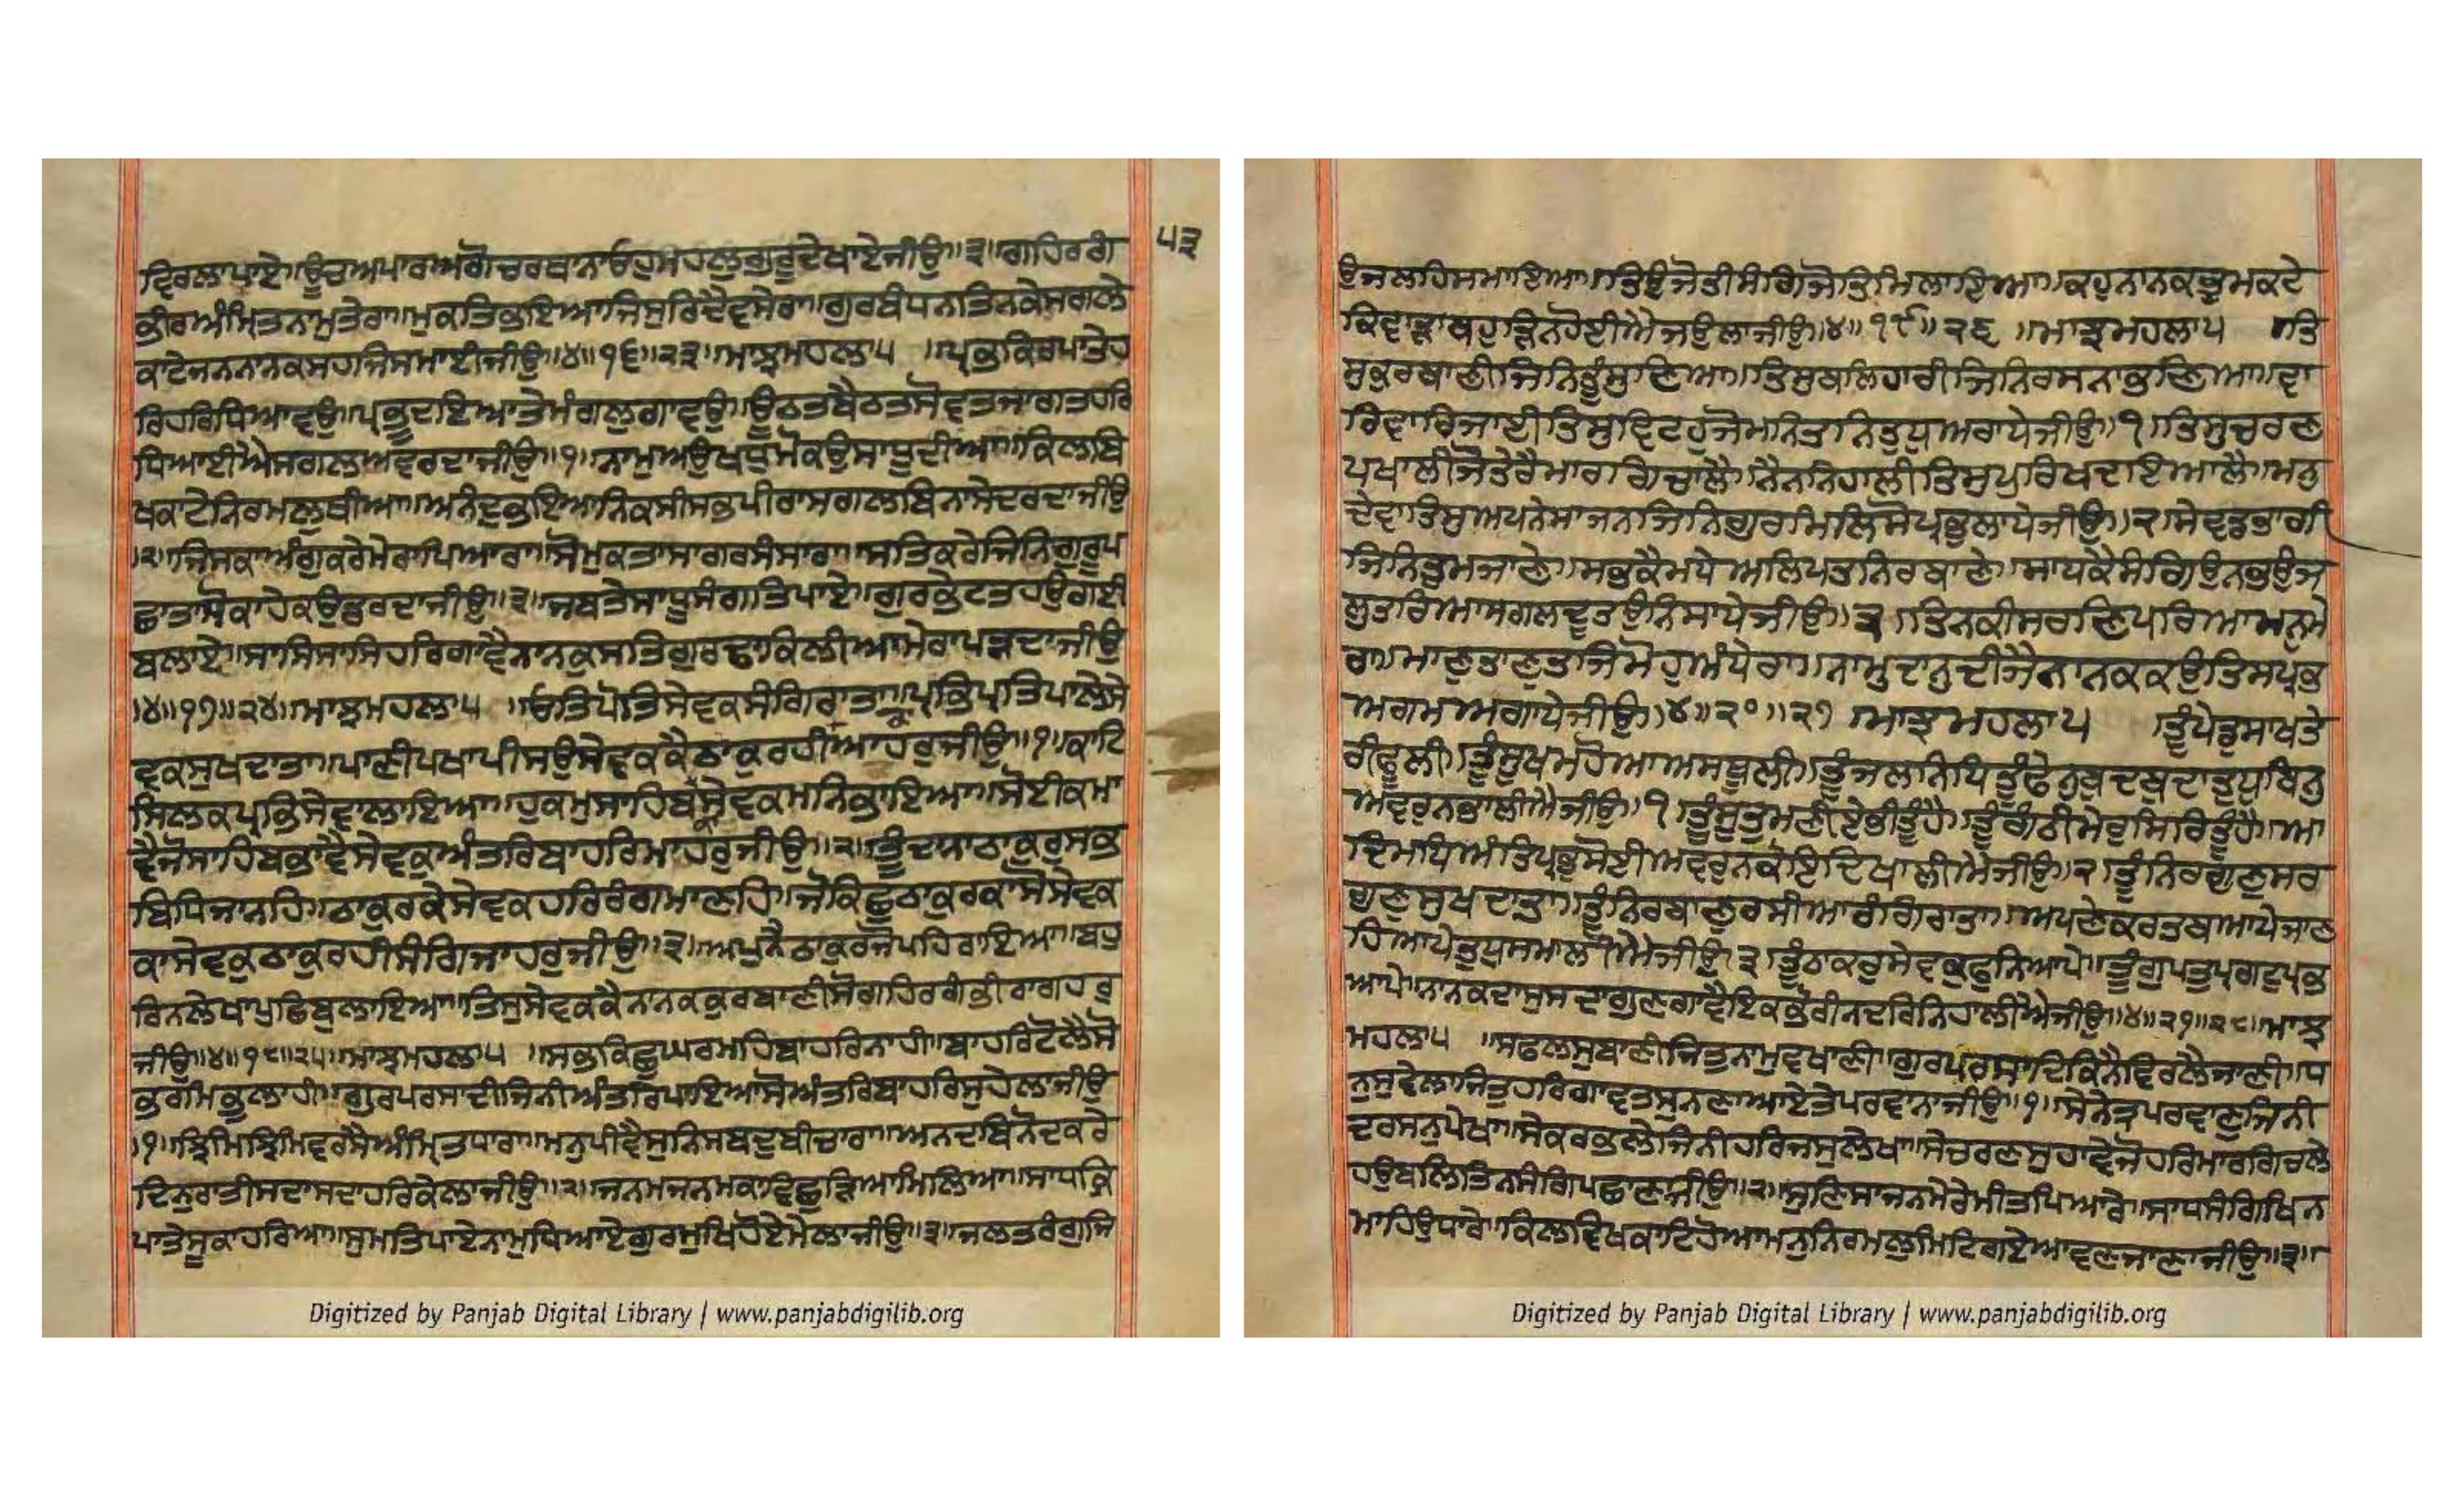 ਵਿਰਲਾਪਾਏ॥ਊਚਅਪਾਰਅਗੋਚਰਥਾਨਾਓਹੁਮਹਲੁਗੁਰੂਦੇਖਾਏਜੀਉ॥੩॥ਗਹਿਰਗੰ
ਭੀਰਅੰਮ੍ਰਿਤਨਾਮੁਤੇਰਾ॥ਮੁਕਤਿਭਇਆਜਿਸੁਰਿਦੈਵਸੇਰਾ॥ਗੁਰਬੰਧਨਤਿਨਕੇਸਗਲੇ
ਕਾਟੇਜਨਨਾਨਕਸਹਜਿਸਮਾਈਜੀਉ॥੪॥੧੬॥੨੩॥ਮਾਝਮਹਲਾ੫ ॥ਪ੍ਰਭਕਿਰਪਾਤੇਹ
ਰਿਹਰਿਧਿਆਵਉ॥ਪ੍ਰਭੂਦਇਆਤੇਮੰਗਲੁਗਾਵਉ॥ਊਠਤਬੈਠਤਸੋਵਤਜਾਗਤਹਰਿ
ਧਿਆਈਐਸਗਲਅਵਰਦਾਜੀਉ॥੧॥ਨਾਮੁਅਉਖਧੁਮੋਕਉਸਾਧੂਦੀਆ॥ਕਿਲਬਿ
ਖਕਾਟੇਨਿਰਮਲੁਥੀਆ॥ਅਨੰਦੁਭਇਆਨਿਕਸੀਸਭਪੀਰਾਸਗਲਬਿਨਾਸੇਦਰਦਾਜੀਉ
॥੨॥ਜਿਸਕਾਅੰਗੁਕਰੇਮੇਰਾਪਿਆਰਾ॥ਸੋਮੁਕਤਾਸਾਗਰਸੰਸਾਰਾ॥ਸਤਿਕਰੇਜਿਨਿਗੁਰੂਪ
ਛਾਤਾਸੋਕਾਹੇਕਉਡਰਦਾਜੀਉ॥੩॥ਜਬਤੇਸਾਧੂਸੰਗਤਿਪਾਏ॥ਗੁਰਭੇਟਤਹਉਗਈ
ਬਲਾਏ॥ਸਾਸਿਸਾਸਿਹਰਿਗਾਵੈਨਾਨਕੁਸਤਿਗੁਰਢਾਕਿਲੀਆਮੇਰਾਪੜਦਾਜੀਉ
॥੪॥੧੭॥੨੪॥ਮਾਝਮਹਲਾ੫ ॥ਓਤਿਪੋਤਿਸੇਵਕਸੰਗਿਰਾਤਾ॥ਪ੍ਰਭਿਪ੍ਰਤਿਪਾਲੇਸੇ
ਵਕਸੁਖਦਾਤਾ॥ਪਾਣੀਪਖਾਪੀਸਉਸੇਵਕਕੈਠਾਕੁਰਹੀਆਹਰੁਜੀਉ॥੧॥ਕਾਟਿ
ਸਿਲਕਪ੍ਰਭਿਸੇਵਾਲਾਇਆ॥ਹੁਕਮੁਸਾਹਿਬਸੇਵਕਮਨਿਭਾਇਆ॥ਸੋਈਕਮਾ
ਵੈਜੋਸਾਹਿਬਭਾਵੈਸੇਵਕੁਅੰਤਰਿਬਾਹਰਿਮਾਹਰੁਜੀਉ॥੨॥ਤੂੰਦਾਨਾਠਾਕੁਰੁਸਭ
ਬਿਧਿਜਾਨਹਿ॥ਠਾਕੁਰਕੇਸੇਵਕਹਰਿਰੰਗਮਾਣਹਿ॥ਜੋਕਿਛੁਠਾਕੁਰਕਾਸੋਸੇਵਕ
ਕਾਸੇਵਕੁਠਾਕੁਰਹੀਸੰਗਿਜਾਹਰੁਜੀਉ॥੩॥ਅਪੁਨੈਠਾਕੁਰਜੋਪਹਿਰਾਇਆ॥ਬਹੁ
ਰਿਨਲੇਖਾਪੁਛਿਬੁਲਾਇਆ॥ਤਿਸੁਸੇਵਕਕੈਨਾਨਕਕੁਰਬਾਣੀਸੋਗਹਿਰਗੰਭੀਰਾਗਹਰੁ
ਜੀਉ॥੪॥੧੮॥੨੫॥ਮਾਝਮਹਲਾ੫ ॥ਸਭਕਿਛੁਘਰਮਹਿਬਾਹਰਿਨਾਹੀ॥ਬਾਹਰਿਟੋਲੈਸੋ
ਭਰਮਿਭੁਲਾਹੀ॥ਗੁਰਪਰਸਾਦੀਜਿਨੀਅੰਤਰਿਪਾਇਆਸੋਅੰਤਰਿਬਾਹਰਿਸੁਹੇਲਾਜੀਉ
॥੧॥ਝਿਮਿਝਿਮਿਵਰਸੈਅੰਮ੍ਰਿਤਧਾਰਾ॥ਮਨੁਪੀਵੈਸੁਨਿਸਬਦੁਬੀਚਾਰਾ॥ਅਨਦਬਿਨੋਦਕਰੇ
ਦਿਨੁਰਾਤੀਸਦਾਸਦਾਹਰਿਕੇਲਾਜੀਉ॥੨॥ਜਨਮਜਨਮਕਾਵਿਛੁੜਿਆਮਿਲਿਆ॥ਸਾਧਕ੍ਰਿ
ਪਾਤੇਸੂਕਾਹਰਿਆ॥ਸੁਮਤਿਪਾਏਨਾਮੁਧਿਆਏਗੁਰਮੁਖਿਹੋਏਮੇਲਾਜੀਉ॥੩॥ਜਲਤਰੰਗੁਜਿ
੫੩
ਉਜਲਹਿਸਮਾਇਆ॥ਤਿਉਜੋਤੀਸੰਗਿਜੋਤਿਮਿਲਾਇਆ॥ਕਹੁਨਾਨਕਭ੍ਰਮਕਟੇ
ਕਿਵਾੜਾਬਹੁੜਿਨਹੋਈਐਜਉਲਾਜੀਉ॥੪॥੧੯॥੨੬ ॥ਮਾਝਮਹਲਾ੫ ॥ਤਿ
ਸੁਕੁਰਬਾਣੀਜਿਨਿਤੂੰਸੁਣਿਆ॥ਤਿਸੁਬਲਿਹਾਰੀਜਿਨਿਰਸਨਾਭਣਿਆ॥ਵਾ
ਰਿਵਾਰਿਜਾਈਤਿਸੁਵਿਟਹੁਜੋਮਨਿਤਨਿਤੁਧੁਅਰਾਧੇਜੀਉ॥੧॥ਤਿਸੁਚਰਣ
ਪਖਾਲੀਜੋਤੇਰੈਮਾਰਗਿਚਾਲੈ॥ਨੈਨਨਿਹਾਲੀਤਿਸੁਪੁਰਖਿਦਇਆਲੈ॥ਮਨੁ
ਦੇਵਾਤਿਸੁਅਪਨੇਸਾਜਨਜਿਨਿਗੁਰਮਿਲਿਸੋਪ੍ਰਭੁਲਾਧੇਜੀਉ॥੨॥ਸੇਵਡਭਾਗੀ
ਜਿਨਿਤੁਮਜਾਣੇ॥ਸਭਕੈਮਧੇਅਲਿਪਤੁਨਿਰਬਾਣੇ॥ਸਾਧਕੈਸੰਗਿਉਨਭਉਜ
ਲੁਤਰਿਆਸਗਲਦੂਤਉਨਿਸਾਧੇਜੀਉ॥੩॥ਤਿਨਕੀਸਰਣਿਪਰਿਆਮਨੁਮੇ
ਰਾ॥ਮਾਣੁਤਾਣੁਤਜਿਮੋਹੁਅੰਧੇਰਾ॥ਨਾਮੁਦਾਨੁਦੀਜੈਨਾਨਕਕਉਤਿਸਪ੍ਰਭ
ਅਗਮਅਗਾਧੇਜੀਉ॥੪॥੨੦॥੨੭ ॥ਮਾਝਮਹਲਾ੫ ਤੂੰਪੇਡੁਸਾਖਤੇ
ਰੀਫੂਲੀ॥ਤੂੰਸੂਖਮਹੋਆਅਸਥੂਲੀ॥ਤੂੰਜਲਨਿਧਿਤੂੰਫੇਨੁਬੁਦਬੁਦਾਤੁਧੁਬਿਨੁ
ਅਵਰੁਨਭਾਲੀਐਜੀਉ॥੧॥ਤੂੰਸੂਤੁਮਣੀਏਭੀਤੂੰਹੈ॥ਤੂੰਗੰਠੀਮੇਰੁਸਿਰਿਤੂੰਹੈ॥ਆ
ਦਿਮਧਿਅੰਤਿਪ੍ਰਭੁਸੋਈਅਵਰੁਨਕੋਇਦਿਖਾਲੀਐਜੀਉ॥੨॥ਤੂੰਨਿਰਗੁਣੁਸਰ
ਗੁਣੁਸੁਖਦਾਤਾ॥ਤੂੰਨਿਰਬਾਣੁਰਸੀਆਰੰਗਿਰਾਤਾ॥ਅਪਣੇਕਰਤਬਆਪੇਜਾਣ
ਹਿਆਪੇਤੁਧੁਸਮਾਲੀਐਜੀਉ॥੩॥ਤੂੰਠਾਕੁਰੁਸੇਵਕੁਫੁਨਿਆਪੇ॥ਤੂੰਗੁਪਤੁਪ੍ਰਗਟੁਪ੍ਰਭ
ਆਪੇ॥ਨਾਨਕਦਾਸੁਸਦਾਗੁਣਗਾਵੈਇਕਭੋਰੀਨਦਰਿਨਿਹਾਲੀਐਜੀਉ॥੪॥੨੧॥੨੮॥ਮਾਝ
ਮਹਲਾ੫ ॥ਸਫਲਸੁਬਾਣੀਜਿਤੁਨਾਮੁਵਖਾਣੀ॥ਗੁਰਪਰਸਾਦਿਕਿਨੈਵਿਰਲੈਜਾਣੀ॥ਧੰ
ਨੁਸੁਵੇਲਾਜਿਤੁਹਰਿਗਾਵਤਸੁਨਣਾਆਏਤੇਪਰਵਾਨਾਜੀਉ॥੧॥ਸੇਨੇਤ੍ਰਪਰਵਾਣੁਜਿਨੀ
ਦਰਸਨੁਪੇਖਾ॥ਸੇਕਰਭਲੇਜਿਨੀਹਰਿਜਸੁਲੇਖਾ॥ਸੇਚਰਣਸੁਹਾਵੇਜੋਹਰਿਮਾਰਗਿਚਲੇ
ਹਉਬਲਿਤਿਨਸੰਗਿਪਛਾਣਾਜੀਉ॥੨॥ਸੁਣਿਸਾਜਨਮੇਰੇਮੀਤਪਿਆਰੇ॥ਸਾਧਸੰਗਿਖਿਨ
ਮਾਹਿਉਧਾਰੇ॥ਕਿਲਵਿਖਕਾਟਿਹੋਆਮਨੁਨਿਰਮਲੁਮਿਟਿਗਏਆਵਣਜਾਣਾਜੀਉ॥੩॥
Digitized by Panjab Digital Library | www.panjabdigilib.org
Digitized by Panjab Digital Library | www.panjabdigilib.org